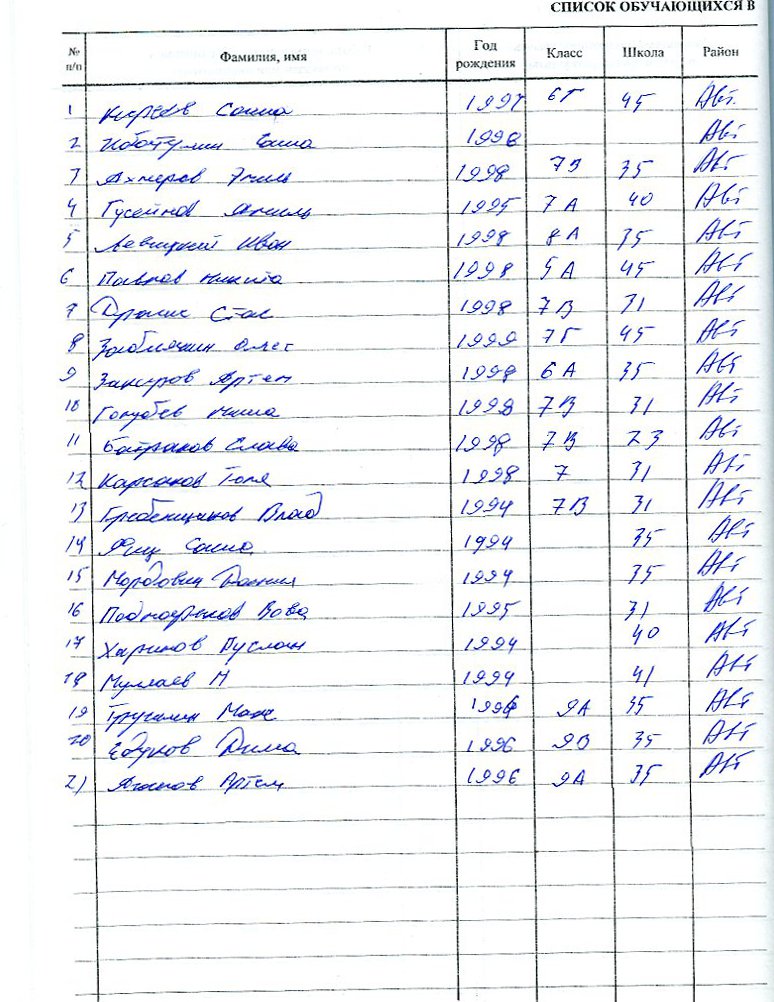 СПИСОК ОБУЧАЮЩИХСЯ В
№ п/п Фамилия, имя Год рождения Класс Школа Район
1 Киреев Саша 1997 6Г 45 Авт.
2 Саша 1998 Авт
3 Ахмеров Эмиль 1998 7В 35 Авт
4 Гусейнов 1995 7А 40 Авт
5 Левицкий Иван 1998 8А 35 Авт
6 Павлов Никита 1998 5А 45 Авт
7 Стас 1998 7В 31 Авт
8 Олег 1999 7Г 45 Авт
9 Закиров Артем 1998 6А 35 Авт
10 Голубев Миша 1998 7В 31 Авт
11 Батраков Слава 1998 7В 23 Авт
12 Карсаков Толя 1998 7 31 Авт
13 Гребенщиков Влад 1994 7В 31 Авт
14 Саша 1994 35 Авт
15 Даниил 1994 35 Авт
16 Вова 1995 31 Авт
17 Харисов Руслан 1994 40 Авт
18 М 1994 41 Авт
19 Макс 1996 9А 35 Авт
20 Дима 1996 9В 35 Авт
21 Артем 1996 9А 35 Авт